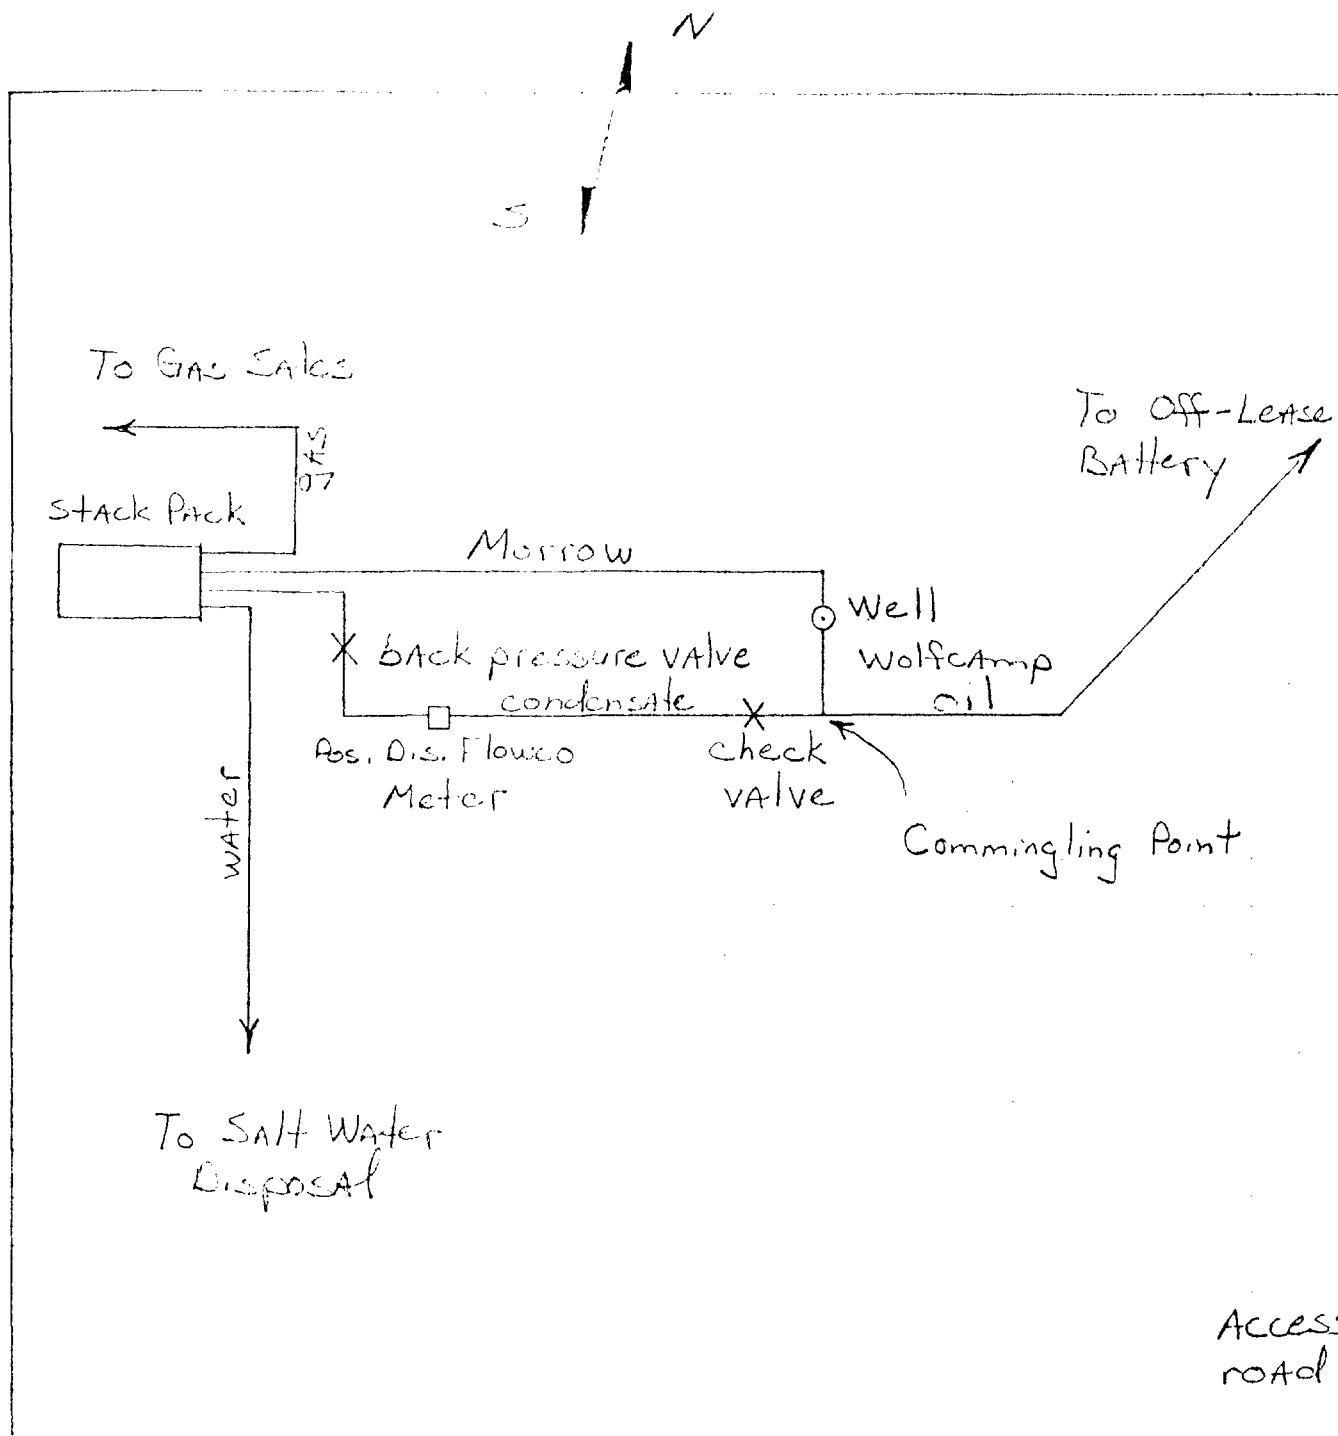 N
S
To Gas Sales
gas
To Off-Lease
Battery
Stack Pack
Morrow
Well
Wolfcamp
oil
back pressure valve
condensate
Pos. Dis. Flowco
Meter
check
valve
Commingling Point
water
To Salt Water
Disposal
Access
road